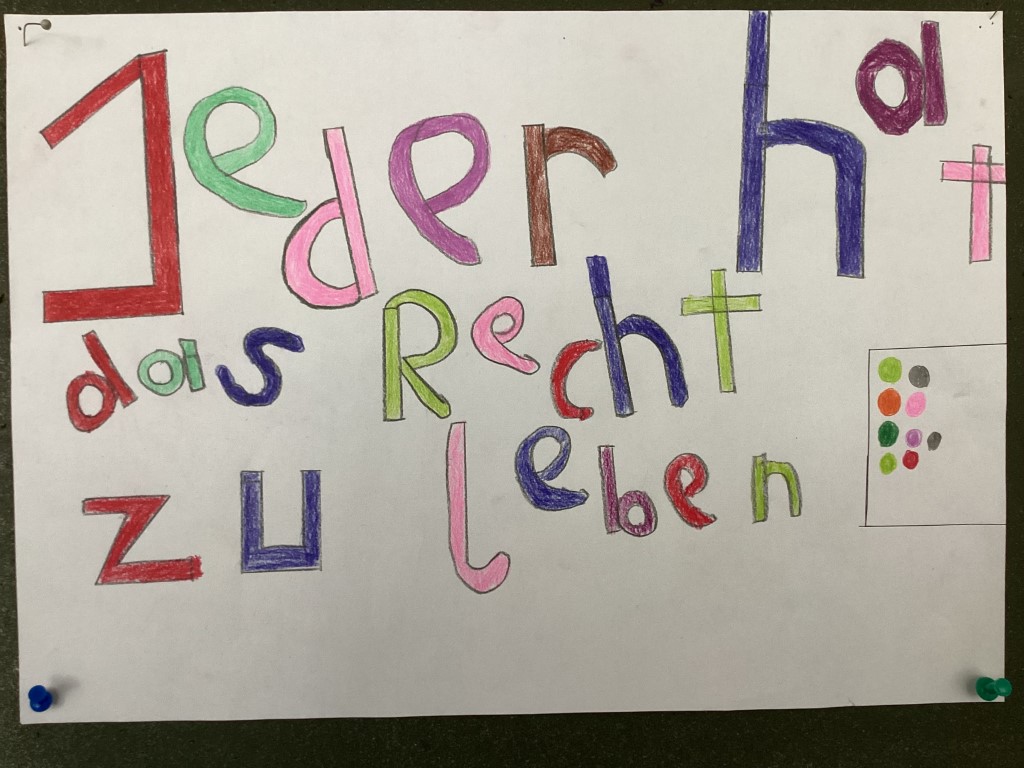 Jeder hat
das Recht
zu leben